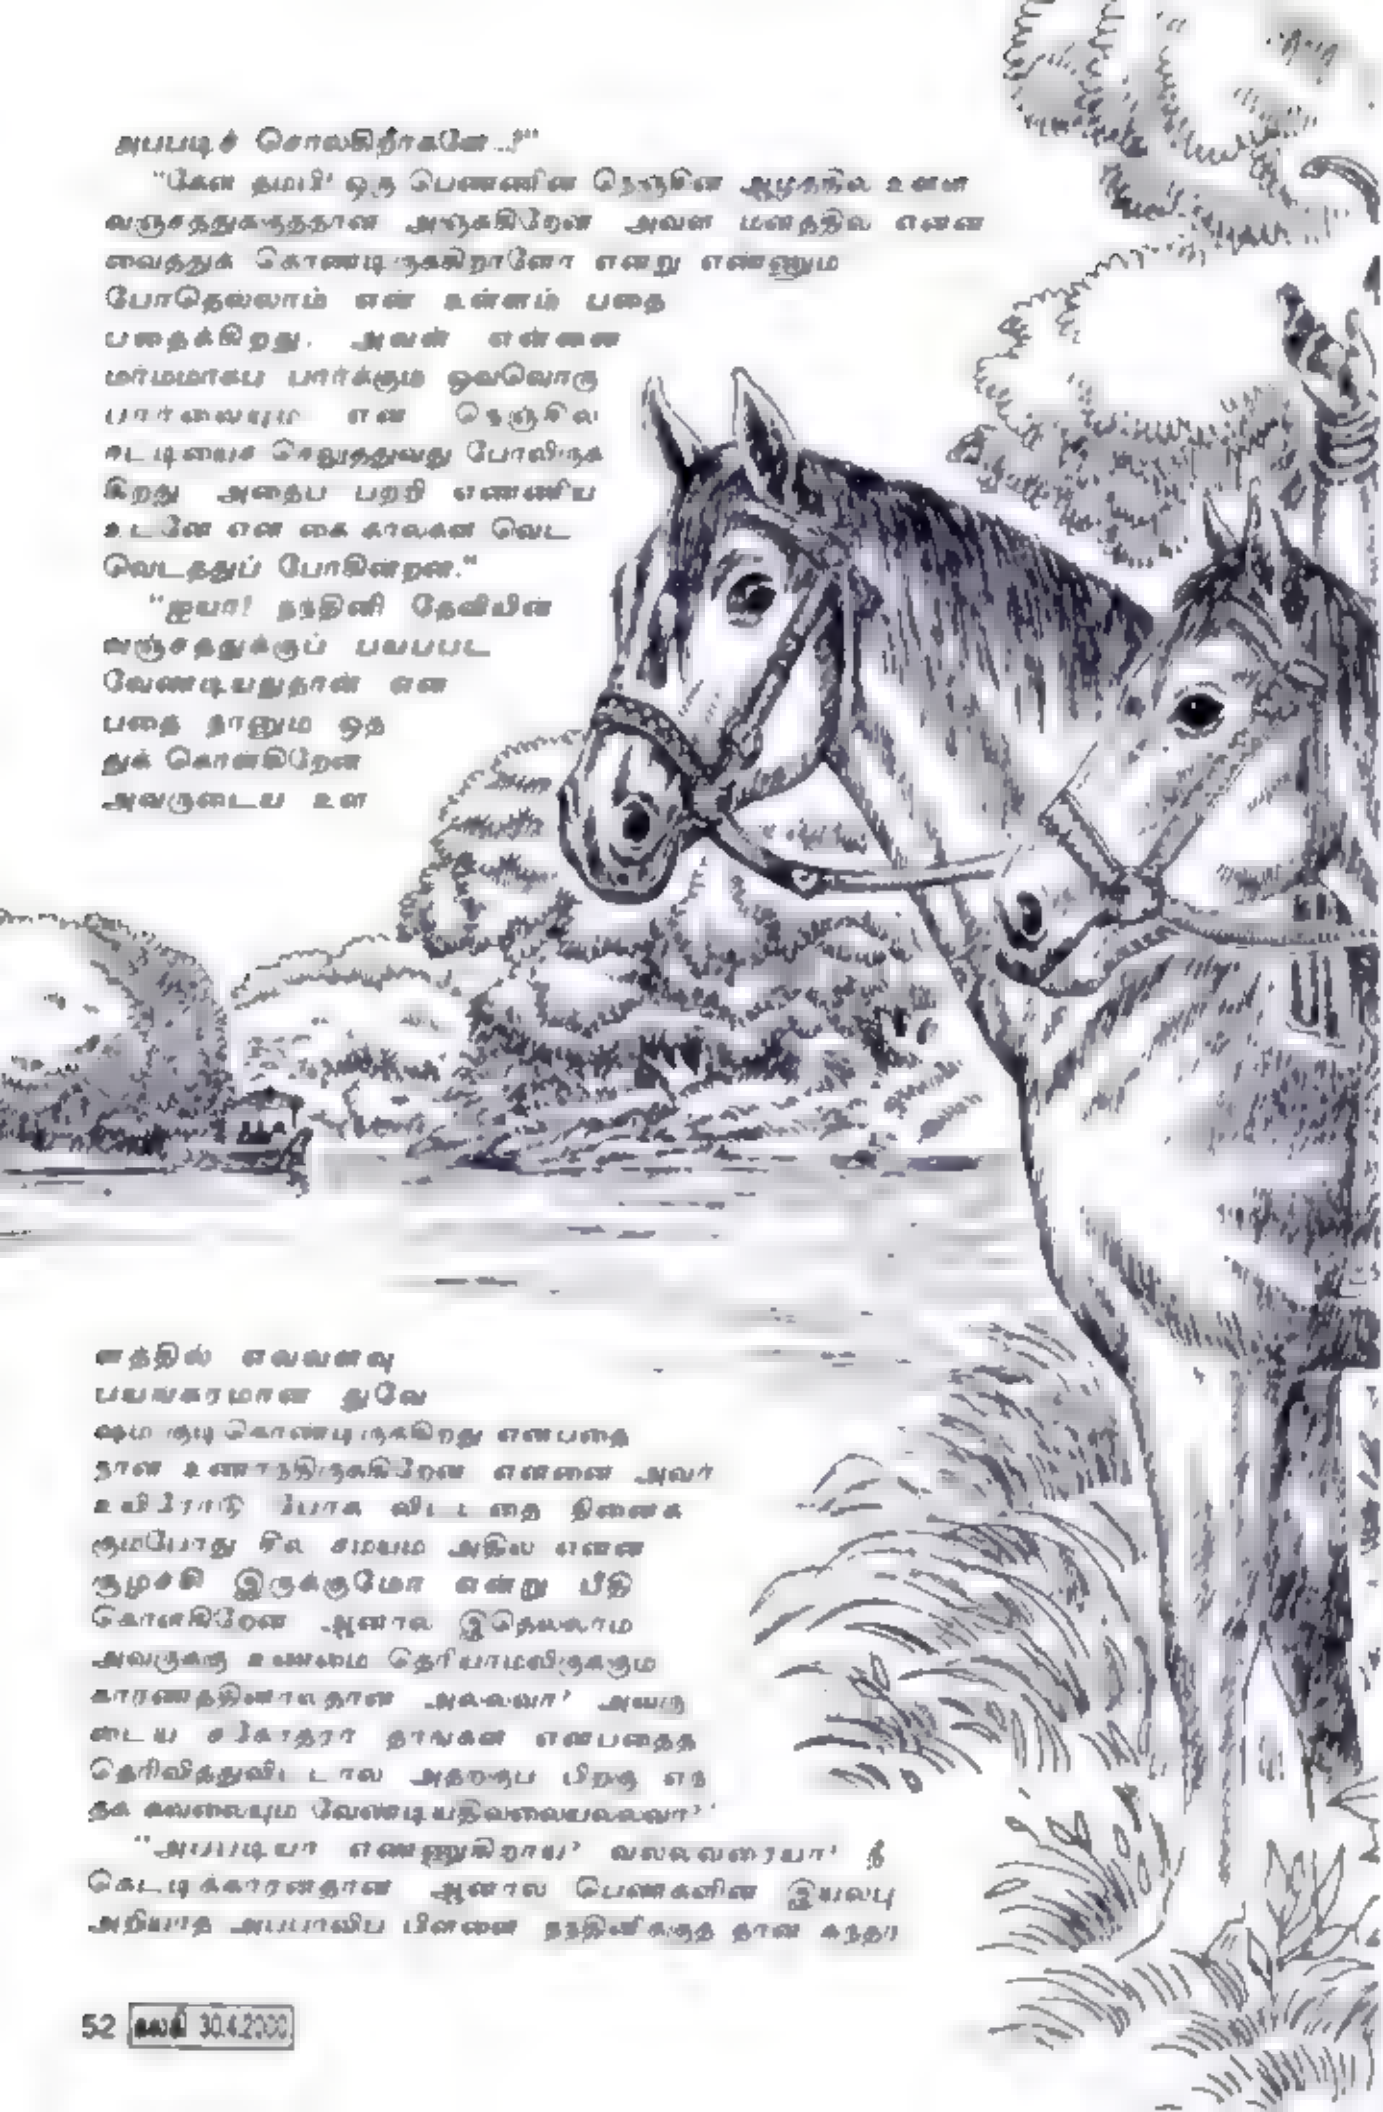 அப்படிச் சொல்கிறீர்களே...?"
"கேள் தம்பி! ஒரு பெண்ணின் நெஞ்சின் ஆழத்தில் உள்ள
வஞ்சத்துக்குத்தான் அஞ்சுகிறேன் அவள் மனத்தில் என்ன
வைத்துக் கொண்டிருக்கிறாளோ என்று எண்ணும்
போதெல்லாம் என் உள்ளம் பதை
பதைக்கிறது. அவள் என்னை
மர்மமாகப் பார்க்கும் ஒவ்வொரு
பார்வையும் என் நெஞ்சில்
ஈட்டியைச் செலுத்துவது போலிருக்
கிறது அதைப் பற்றி எண்ணிய
உடனே என் கை கால்கள் வெட
வெடத்துப் போகின்றன."
"ஐயா! நந்தினி தேவியின்
வஞ்சத்துக்குப் பயப்பட
வேண்டியதுதான் என்
பதை நானும் ஒத்
துக் கொள்கிறேன்
அவருடைய உள்
ளத்தில் எவ்வளவு
பயங்கரமான துவே
ஷம் குடி கொண்டிருக்கிறது என்பதை
நான் உணர்ந்திருக்கிறேன் என்னை அவர்
உயிரோடு போக விட்டதை நினைக்
கும்போது சில சமயம் அதில் என்ன
சூழ்ச்சி இருக்குமோ என்று பீதி
கொள்கிறேன் ஆனால் இதெல்லாம்
அவருக்கு உண்மை தெரியாமலிருக்கும்
காரணத்தினால்தான் அல்லவா? அவரு
டைய சகோதரர் தாங்கள் என்பதைத்
தெரிவித்துவிட்டால் அதற்குப் பிறகு எந்
தக் கவலையும் வேண்டியதில்லையல்லவா?"
"அப்படியா எண்ணுகிறாய்? வல்லவரையா! நீ
கெட்டிக்காரன்தான் ஆனால் பெண்களின் இயல்பு
அறியாத அப்பாவிப் பிள்ளை நந்தினிக்குத் தான் சுந்தர
52 கல்கி 30.4.2000